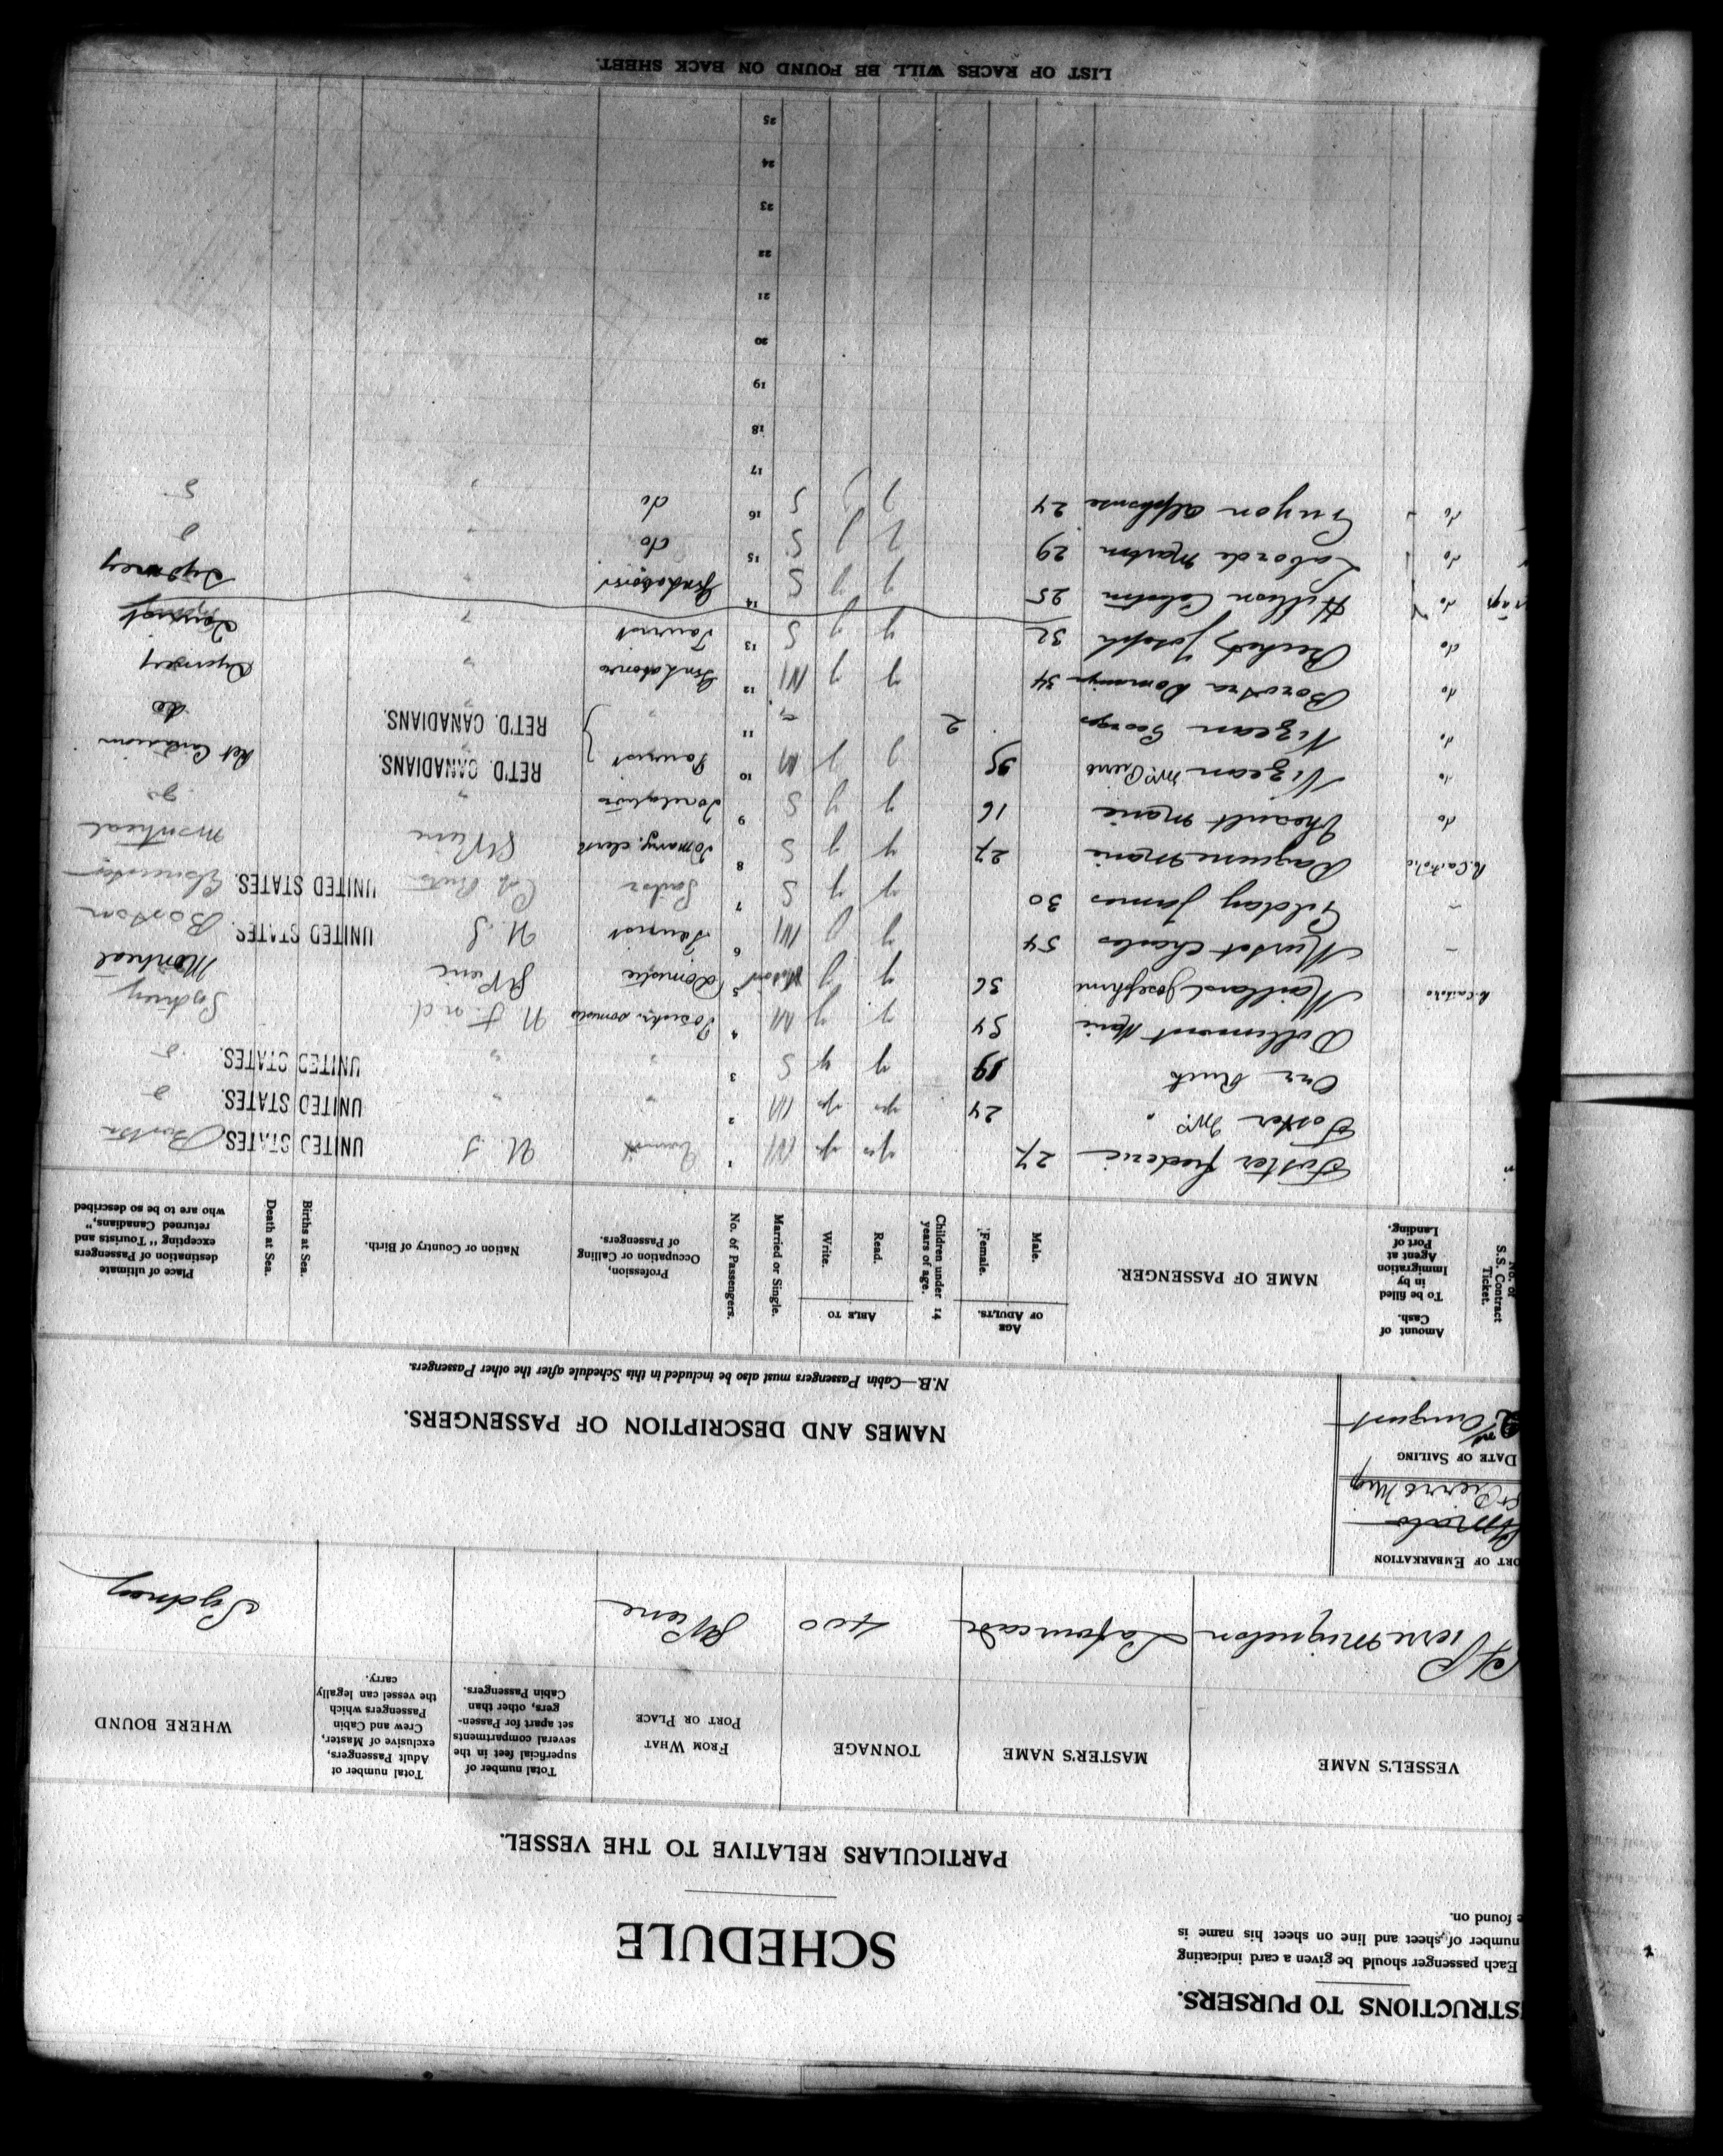 INSTRUCTIONS TO PURSERS.
Each passenger should be given a card indicating
number of sheet and line on sheet his name is
found on.
SCHEDULE
PARTICULARS RELATIVE TO THE VESSEL.
VESSEL'S NAME MASTER'S NAME TONNAGE FROM WHAT PORT OR PLACE Total number of superficial feet in the several compartments set apart for Passengers, other than Cabin Passengers. Total number of Adult Passengers, exclusive of Master, Crew and Cabin Passengers which the vessel can legally carry. WHERE BOUND
St Pierre Miquelon Lafourcade 400 St Pierre Sydney
PORT OF EMBARKATION
St Pierre Miq
DATE OF SAILING
2nd August
NAMES AND DESCRIPTION OF PASSENGERS.
N.B.—Cabin Passengers must also be included in this Schedule after the other Passengers.
No. of S.S. Contract Ticket. Amount of Cash. To be filled in by Immigration Agent at Port of Landing. NAME OF PASSENGER. AGE OF ADULTS. Male. Female. Children under 14 years of age. ABLE TO Read. Write. Married or Single. No. of Passengers. Profession, Occupation or Calling of Passengers. Nation or Country of Birth. Births at Sea. Death at Sea. Place of ultimate destination of Passengers excepting "Tourists and returned Canadians," who are to be so described
Foster Frederic 27 yes yes M 1 Tourist U S UNITED STATES. Boston
Foster Mrs " 24 yes yes M 2 " " UNITED STATES. do
Orr Ruth 19 y y S 3 " " UNITED STATES. do
Dollimount Marie 54 y y M 4 domestic N F nd Sydney
R. Catholic Maillard Josephine 36 y y 5 Domestic St Pierre Montreal
Charles 54 y y M 6 Tourist U. S UNITED STATES. Boston
Gilday James 30 y y S 7 Sailor UNITED STATES. Gloucester
R. Catholic Marie 27 y y S 8 clerk St Pierre Montreal
do Theault Marie 16 y y S 9 " do
do Vigean Mrs Pierre 35 y y M 10 Tourist RET'D. CANADIANS. Ret Canadian
do Vigean George 2 11 " RET'D. CANADIANS. do
do Borotra 34 y y M 12 " Sydney
do Joseph 32 y y S 13 Tourist " Tourist
do 25 y y S 14 " Sydney
do Laborde Martin 29 y y S 15 do " do
do Guyon Alphonse 24 y y S 16 do " do
17
18
19
20
21
22
23
24
25
LIST OF RACES WILL BE FOUND ON BACK SHEET.